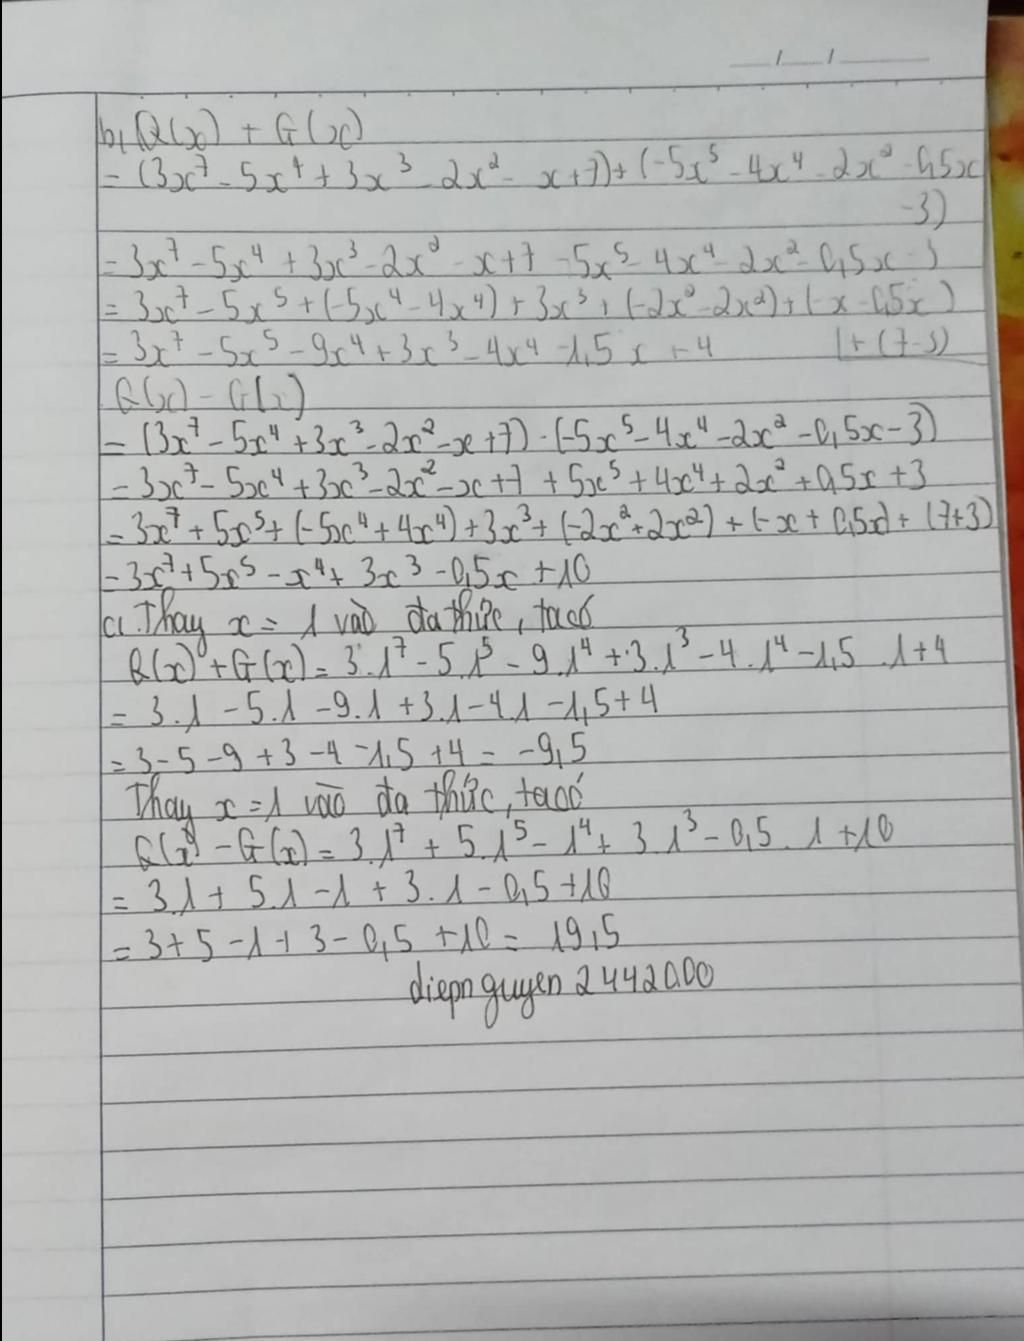 b, Q(x) + G(x)
= (3x⁷ - 5x⁴ + 3x³ - 2x² - x + 7) + (-5x⁵ - 4x⁴ - 2x² - 0,5x
-3)
= 3x⁷ - 5x⁴ + 3x³ - 2x² - x + 7 - 5x⁵ - 4x⁴ - 2x² - 0,5x - 3
= 3x⁷ - 5x⁵ + (-5x⁴ - 4x⁴) + 3x³ + (-2x² - 2x²) + (-x - 0,5x)
= 3x⁷ - 5x⁵ - 9x⁴ + 3x³ - 4x⁴ - 1,5x + 4 + (7-3)
Q(x) - G(x)
= (3x⁷ - 5x⁴ + 3x³ - 2x² - x + 7) - (-5x⁵ - 4x⁴ - 2x² - 0,5x - 3)
= 3x⁷ - 5x⁴ + 3x³ - 2x² - x + 7 + 5x⁵ + 4x⁴ + 2x² + 0,5x + 3
= 3x⁷ + 5x⁵ + (-5x⁴ + 4x⁴) + 3x³ + (-2x² + 2x²) + (-x + 0,5x) + (7+3)
= 3x⁷ + 5x⁵ - x⁴ + 3x³ - 0,5x + 10
c, Thay x = 1 vào đa thức, ta có
Q(x) + G(x) = 3.1⁷ - 5.1⁵ - 9.1⁴ + 3.1³ - 4.1⁴ - 1,5.1 + 4
= 3.1 - 5.1 - 9.1 + 3.1 - 4.1 - 1,5 + 4
= 3 - 5 - 9 + 3 - 4 - 1,5 + 4 = -9,5
Thay x = 1 vào đa thức, ta có
Q(x) - G(x) = 3.1⁷ + 5.1⁵ - 1⁴ + 3.1³ - 0,5.1 + 10
= 3.1 + 5.1 - 1 + 3.1 - 0,5 + 10
= 3 + 5 - 1 + 3 - 0,5 + 10 = 19,5
diepnguyen2442000